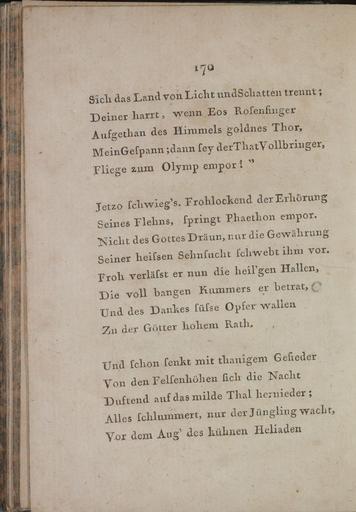 170
Sich das Land von Licht undSchatten trennt;
Deiner harrt, wenn Eos Roſenfinger
Aufgethan des Himmels goldnes Thor,
MeinGeſpann;dann ſey derThatVollbringer,
Fliege zum Olymp empor! ”
Jetzo ſchwieg's. Frohlockend der Erhörung
Seines Flehns, ſpringt Phaethon empor.
Nicht des Gottes Dräun, nur die Gewährung
Seiner heiſsen Sehnſucht ſchwebt ihm vor.
Froh verläſst er nun die heil'gen Hallen,
Die voll bangen Kummers er betrat,
Und des Dankes ſüſse Opfer wallen
Zu der Götter hohem Rath.
Und ſchon ſenkt mit thauigem Gefieder
Von den Felſenhöhen ſich die Nacht
Duftend auf das milde Thal hernieder;
Alles ſchlummert, nur der Jüngling wacht,
Vor dem Aug' des kühnen Heliaden